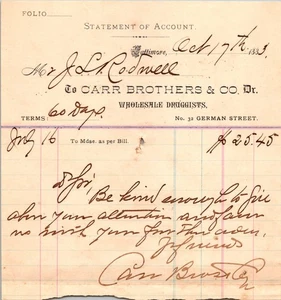 FOLIO
STATEMENT OF ACCOUNT.
Baltimore, Oct 17th 1883.
Mr J. L. Rodwell
To CARR BROTHERS & CO. Dr.
WHOLESALE DRUGGISTS,
TERMS 60 Days No. 31 GERMAN STREET.
July 16 To Mdse. as per Bill. $25.45
D Sir, Be kind enough to give
your attention and
us with your
Carr Bros & Co